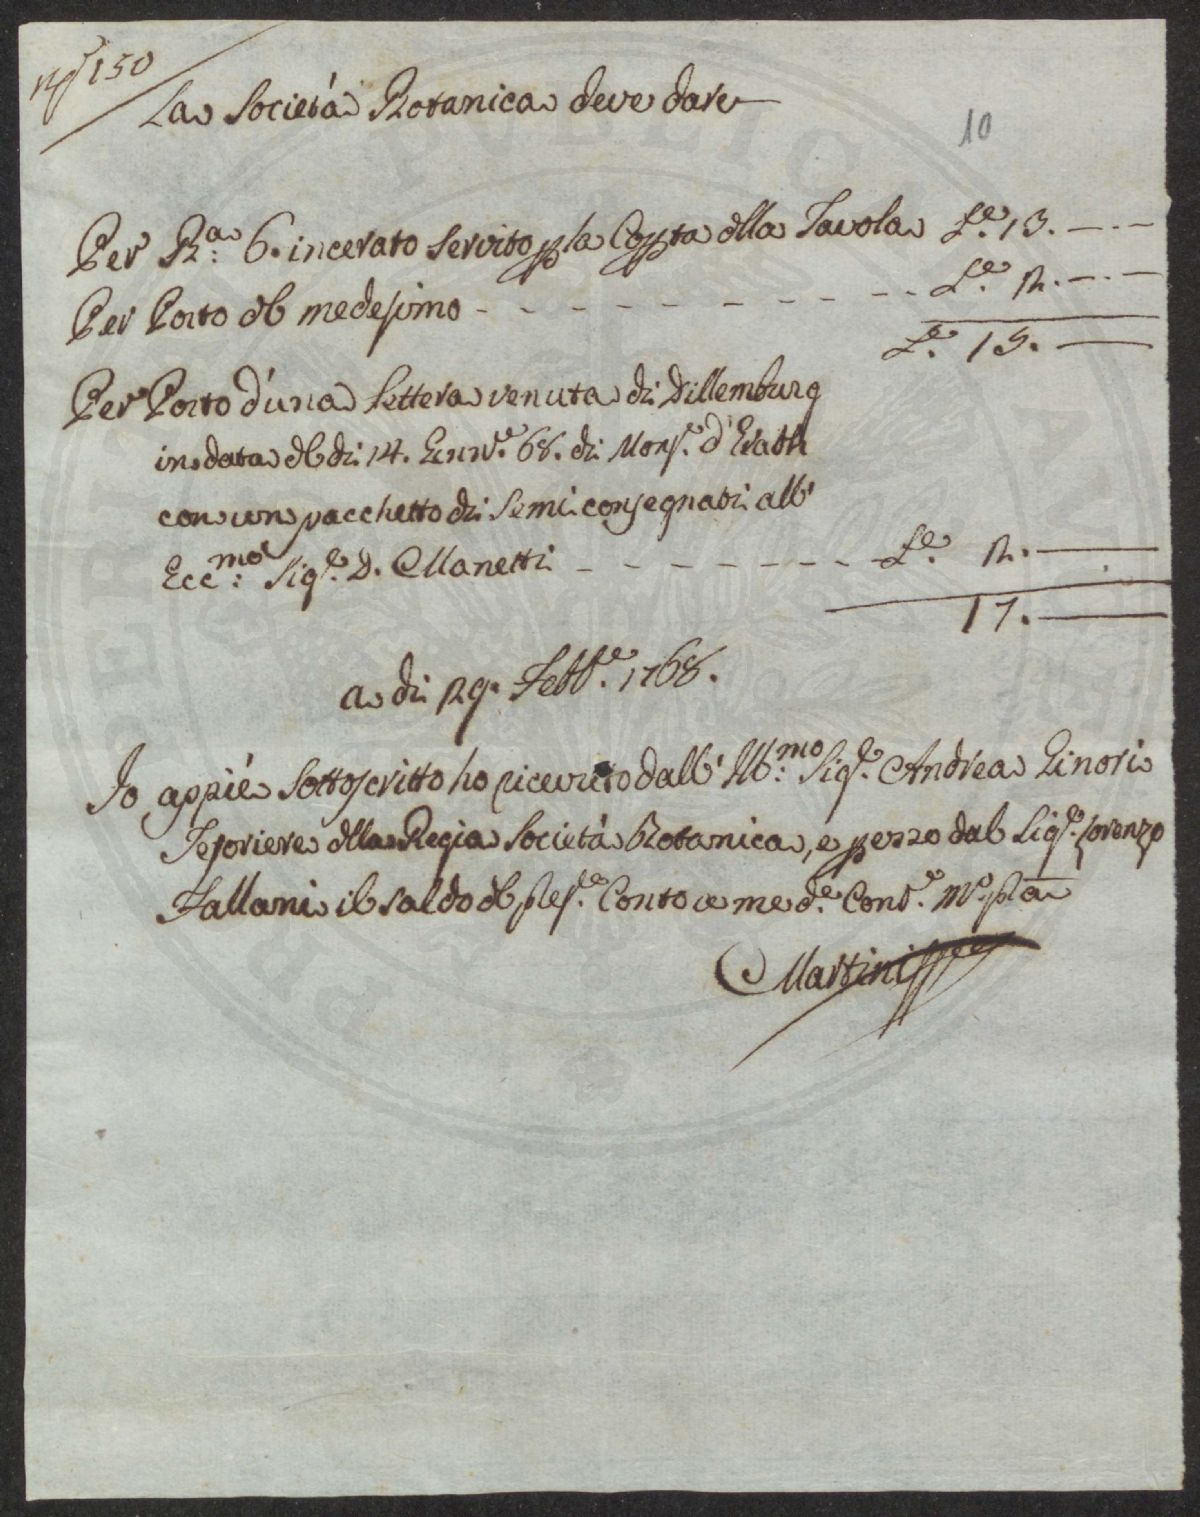 N° 150
La Società Botanica deve dare
10
Per B.a 6. incerato servito p la Copta dlla Tavola L.e 13. —.—
Per Porto dl medesimo - - - - - - - - - L.e 2. —.—
L.e 15. —
Per Porto d'una Lettera venuta di Dillemburg
in data dl di 14. Genn.e 68. di Mons.r d'Erath
con un pacchetto di Semi consegnati all'
Ecc.mo Sig.r D. Manetti - - - - - - - L.e 2. —
17. —
a di 29. Febb.e 1768.
Io appiè Sottoscritto ho ricevuto dall' Ill.mo Sig.r Andrea Ginori
Tesoriere dlla Regia Società Botanica, e per 220 dal Sig.r Lorenzo
Fallani il saldo dl pres.e Conto e med.e Cont.e
Martini